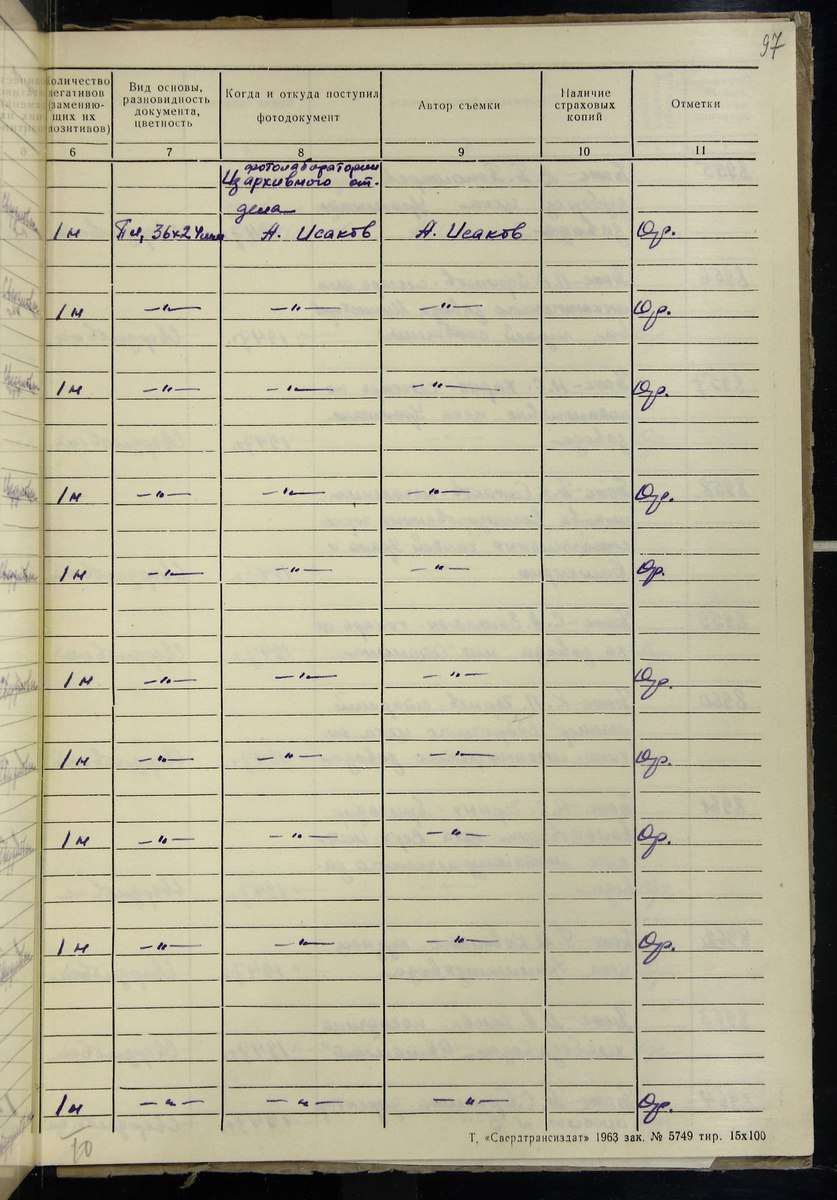 97
Количество негативов (заменяю- щих их позитивов)
Вид основы, разновидность документа, цветность
Когда и откуда поступил фотодокумент
Автор съемки
Наличие страховых копий
Отметки
6 7 8 9 10 11
фотолаборатории
Из архивного от-
дела
1 н Пл, 36х24мм А. Исаков А. Исаков Ор.
1 н —"— —"— —"— Ор.
1 н —"— —"— —"— Ор.
1 н —"— —"— —"— Ор.
1 н —"— —"— —"— Ор.
1 н —"— —"— —"— Ор.
1 н —"— —"— —"— Ор.
1 н —"— —"— —"— Ор.
1 н —"— —"— —"— Ор.
1 н —"— —"— —"— Ор.
10
Т, «Свердтрансиздат» 1963 зак. № 5749 тир. 15х100